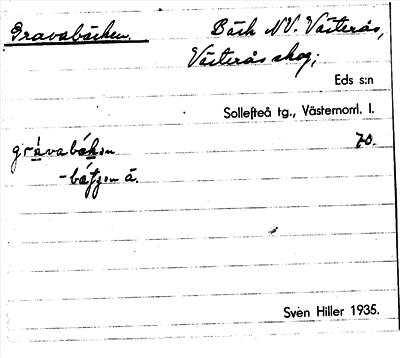 Gravabäcken. Bäck NV. Västerås,
Västerås skog;
Eds s:n
Sollefteå tg., Västernorrl. l.
gràvabä́kən 70.
-bä́ʃʃən ä.
Sven Hiller 1935.